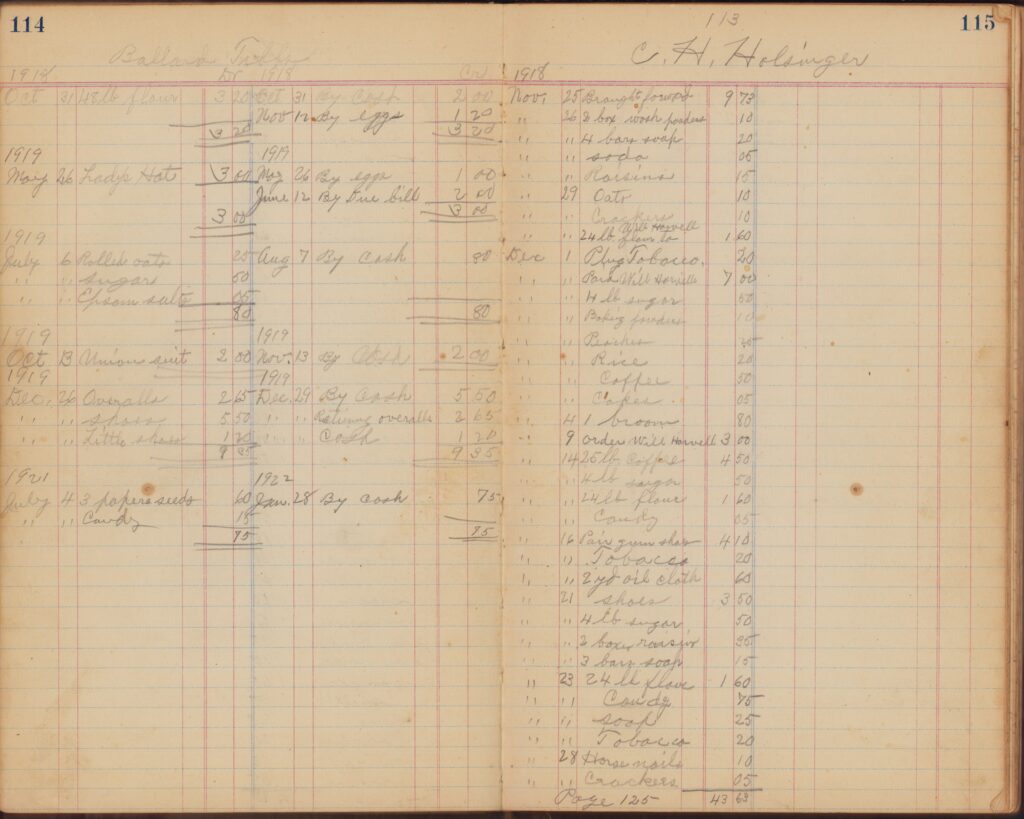 114
Ballard Tubbs
1918 Dr 1918 Cr
Oct 31 48 lb flour 3 20 Oct 31 By Cash 2 00
Nov 12 By eggs 1 20
3 20 3 20
1919 1919
May 26 Lady's Hat 3 00 May 26 By eggs 1 00
June 12 By Due bill 2 00
3 00 3 00
1919
July 6 Rolled oats 25 Aug 7 By Cash 80
" " sugar 50
" " Epsom salts 05
80 80
1919 1919
Oct 13 Union suit 2 00 Nov. 13 By Cash 2 00
1919 1919
Dec. 26 Overalls 2 65 Dec. 29 By Cash 5 50
" " shoes 5 50 " " Returning overalls 2 65
" " Little shoes 1 20 " " Cash 1 20
9 35 9 35
1921 1922
July 4 3 papers seeds 60 Jan. 28 By Cash 75
" " Candy 15
75 75
113
115
C. H. Holsinger
1918
Nov. 25 Brought forward 9 73
" 26 2 box wash powders 10
" " 4 bars soap 20
" " soda 05
" " Raisins 15
" 29 Oats 10
" " Crackers 10
Will Harvell
" " 24 lb flour to 1 60
Dec 1 Plug Tobacco. 20
" " Will Harvell 7 00
" " 4 lb sugar 50
" " Baking powders 10
" " Peaches
" " Rice 20
" " Coffee 50
" " Cakes 05
" 4 1 broom 80
" 9 order Will Harvell 3 00
" 14 25 lb Coffee 4 50
" " 4 lb sugar 50
" " 24 lb flour 1 60
" " Candy 05
" 16 Pair gum shoes 4 10
" " Tobacco 20
" " 2 yd oil cloth 60
" 21 shoes 3 50
" " 4 lb sugar 50
" " 2 boxes raisins
" " 3 bars soap 15
" 23 24 lb flour 1 60
" " Candy 75
" " soap 25
" " Tobacco 20
" 28 Horse nails 10
" " Crackers 05
Page 125 43 63